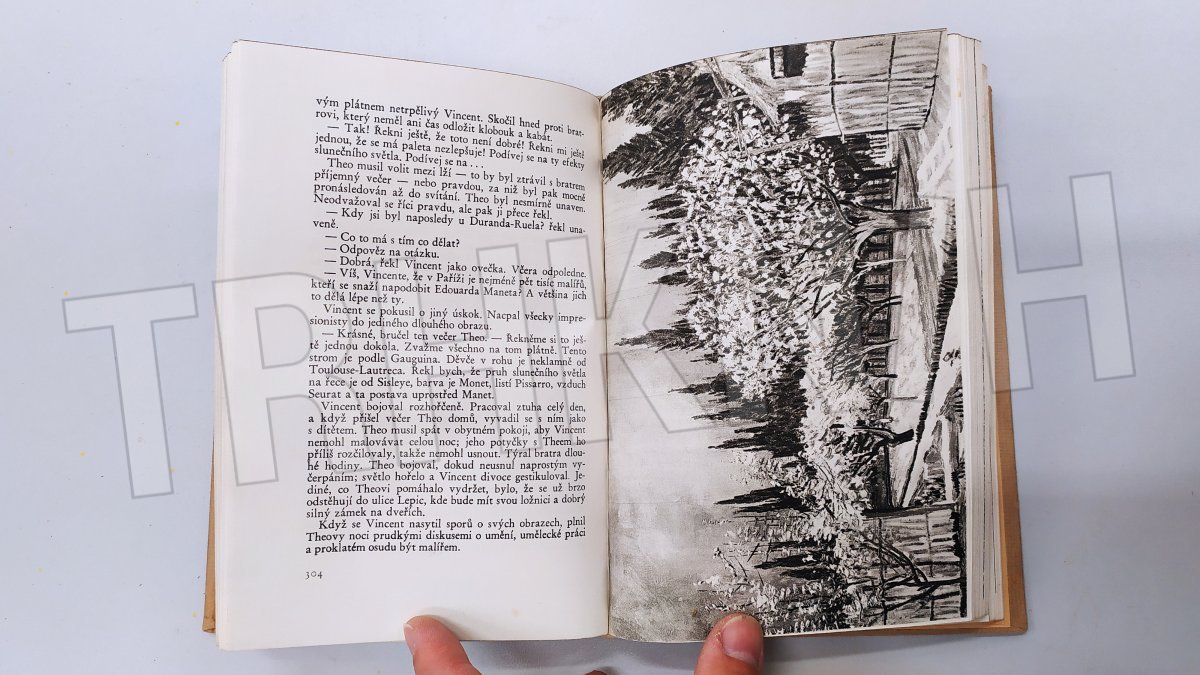 vým plátnem netrpělivý Vincent. Skočil hned proti brat-
rovi, který neměl ani čas odložit klobouk a kabát.
— Tak! Řekni ještě, že toto není dobré! Řekni mi ještě
jednou, že se má paleta nezlepšuje! Podívej se na ty efekty
slunečního světla. Podívej se na . . .
Theo musil volit mezi lží — to by byl ztrávil s bratrem
příjemný večer — nebo pravdou, za niž byl pak mocně
pronásledován až do svítání. Theo byl nesmírně unaven.
Neodvažoval se říci pravdu, ale pak ji přece řekl.
— Kdy jsi byl naposledy u Duranda-Ruela? řekl una-
veně.
— Co to má s tím co dělat?
— Odpověz na otázku.
— Dobrá, řekl Vincent jako ovečka. Včera odpoledne.
— Víš, Vincente, že v Paříži je nejméně pět tisíc malířů,
kteří se snaží napodobit Edouarda Maneta? A většina jich
to dělá lépe než ty.
Vincent se pokusil o jiný úskok. Nacpal všecky impre-
sionisty do jediného dlouhého obrazu.
— Krásné, bručel ten večer Theo. — Řekněme si to ješ-
tě jednou dokola. Zvažme všechno na tom plátně. Tento
strom je podle Gauguina. Děvče v rohu je neklamně od
Toulouse-Lautreca. Řekl bych, že pruh slunečního světla
na řece je od Sisleye, barva je Monet, listí Pissarro, vzduch
Seurat a ta postava uprostřed Manet.
Vincent bojoval rozhořčeně. Pracoval ztuha celý den,
a když přišel večer Theo domů, vyvadil se s ním jako
s dítětem. Theo musil spát v obytném pokoji, aby Vincent
nemohl malovávat celou noc; jeho potyčky s Theem ho
příliš rozčilovaly, takže nemohl usnout. Týral bratra dlou-
hé hodiny. Theo bojoval, dokud neusnul naprostým vy-
čerpáním; světlo hořelo a Vincent divoce gestikuloval. Je-
diné, co Theovi pomáhalo vydržet, bylo, že se už brzo
odstěhují do ulice Lepic, kde bude mít svou ložnici a dobrý
silný zámek na dveřích.
Když se Vincent nasytil sporů o svých obrazech, plnil
Theovy noci prudkými diskusemi o umění, umělecké práci
a proklatém osudu být malířem.
304